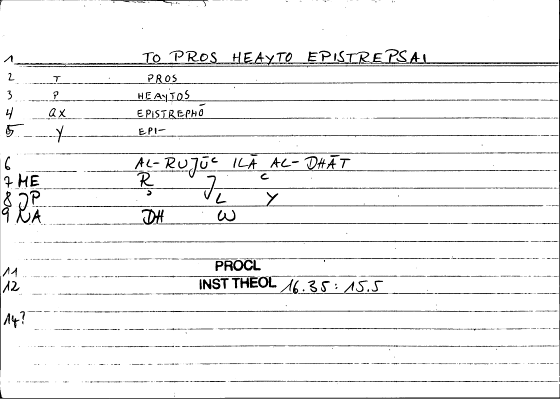 1 TO PROS HEAYTO EPISTREPSAI
2 T PROS
3 P HEAYTOS
4 ax EPISTREPHŌ
5 Y EPI-
6 AL-RUJŪC ILĀ AL-DHĀT
7 ME R J C
8 JP ʾ L Y
9 NA DH W
11 PROCL
12 INST THEOL 16.35: 15.5
14?